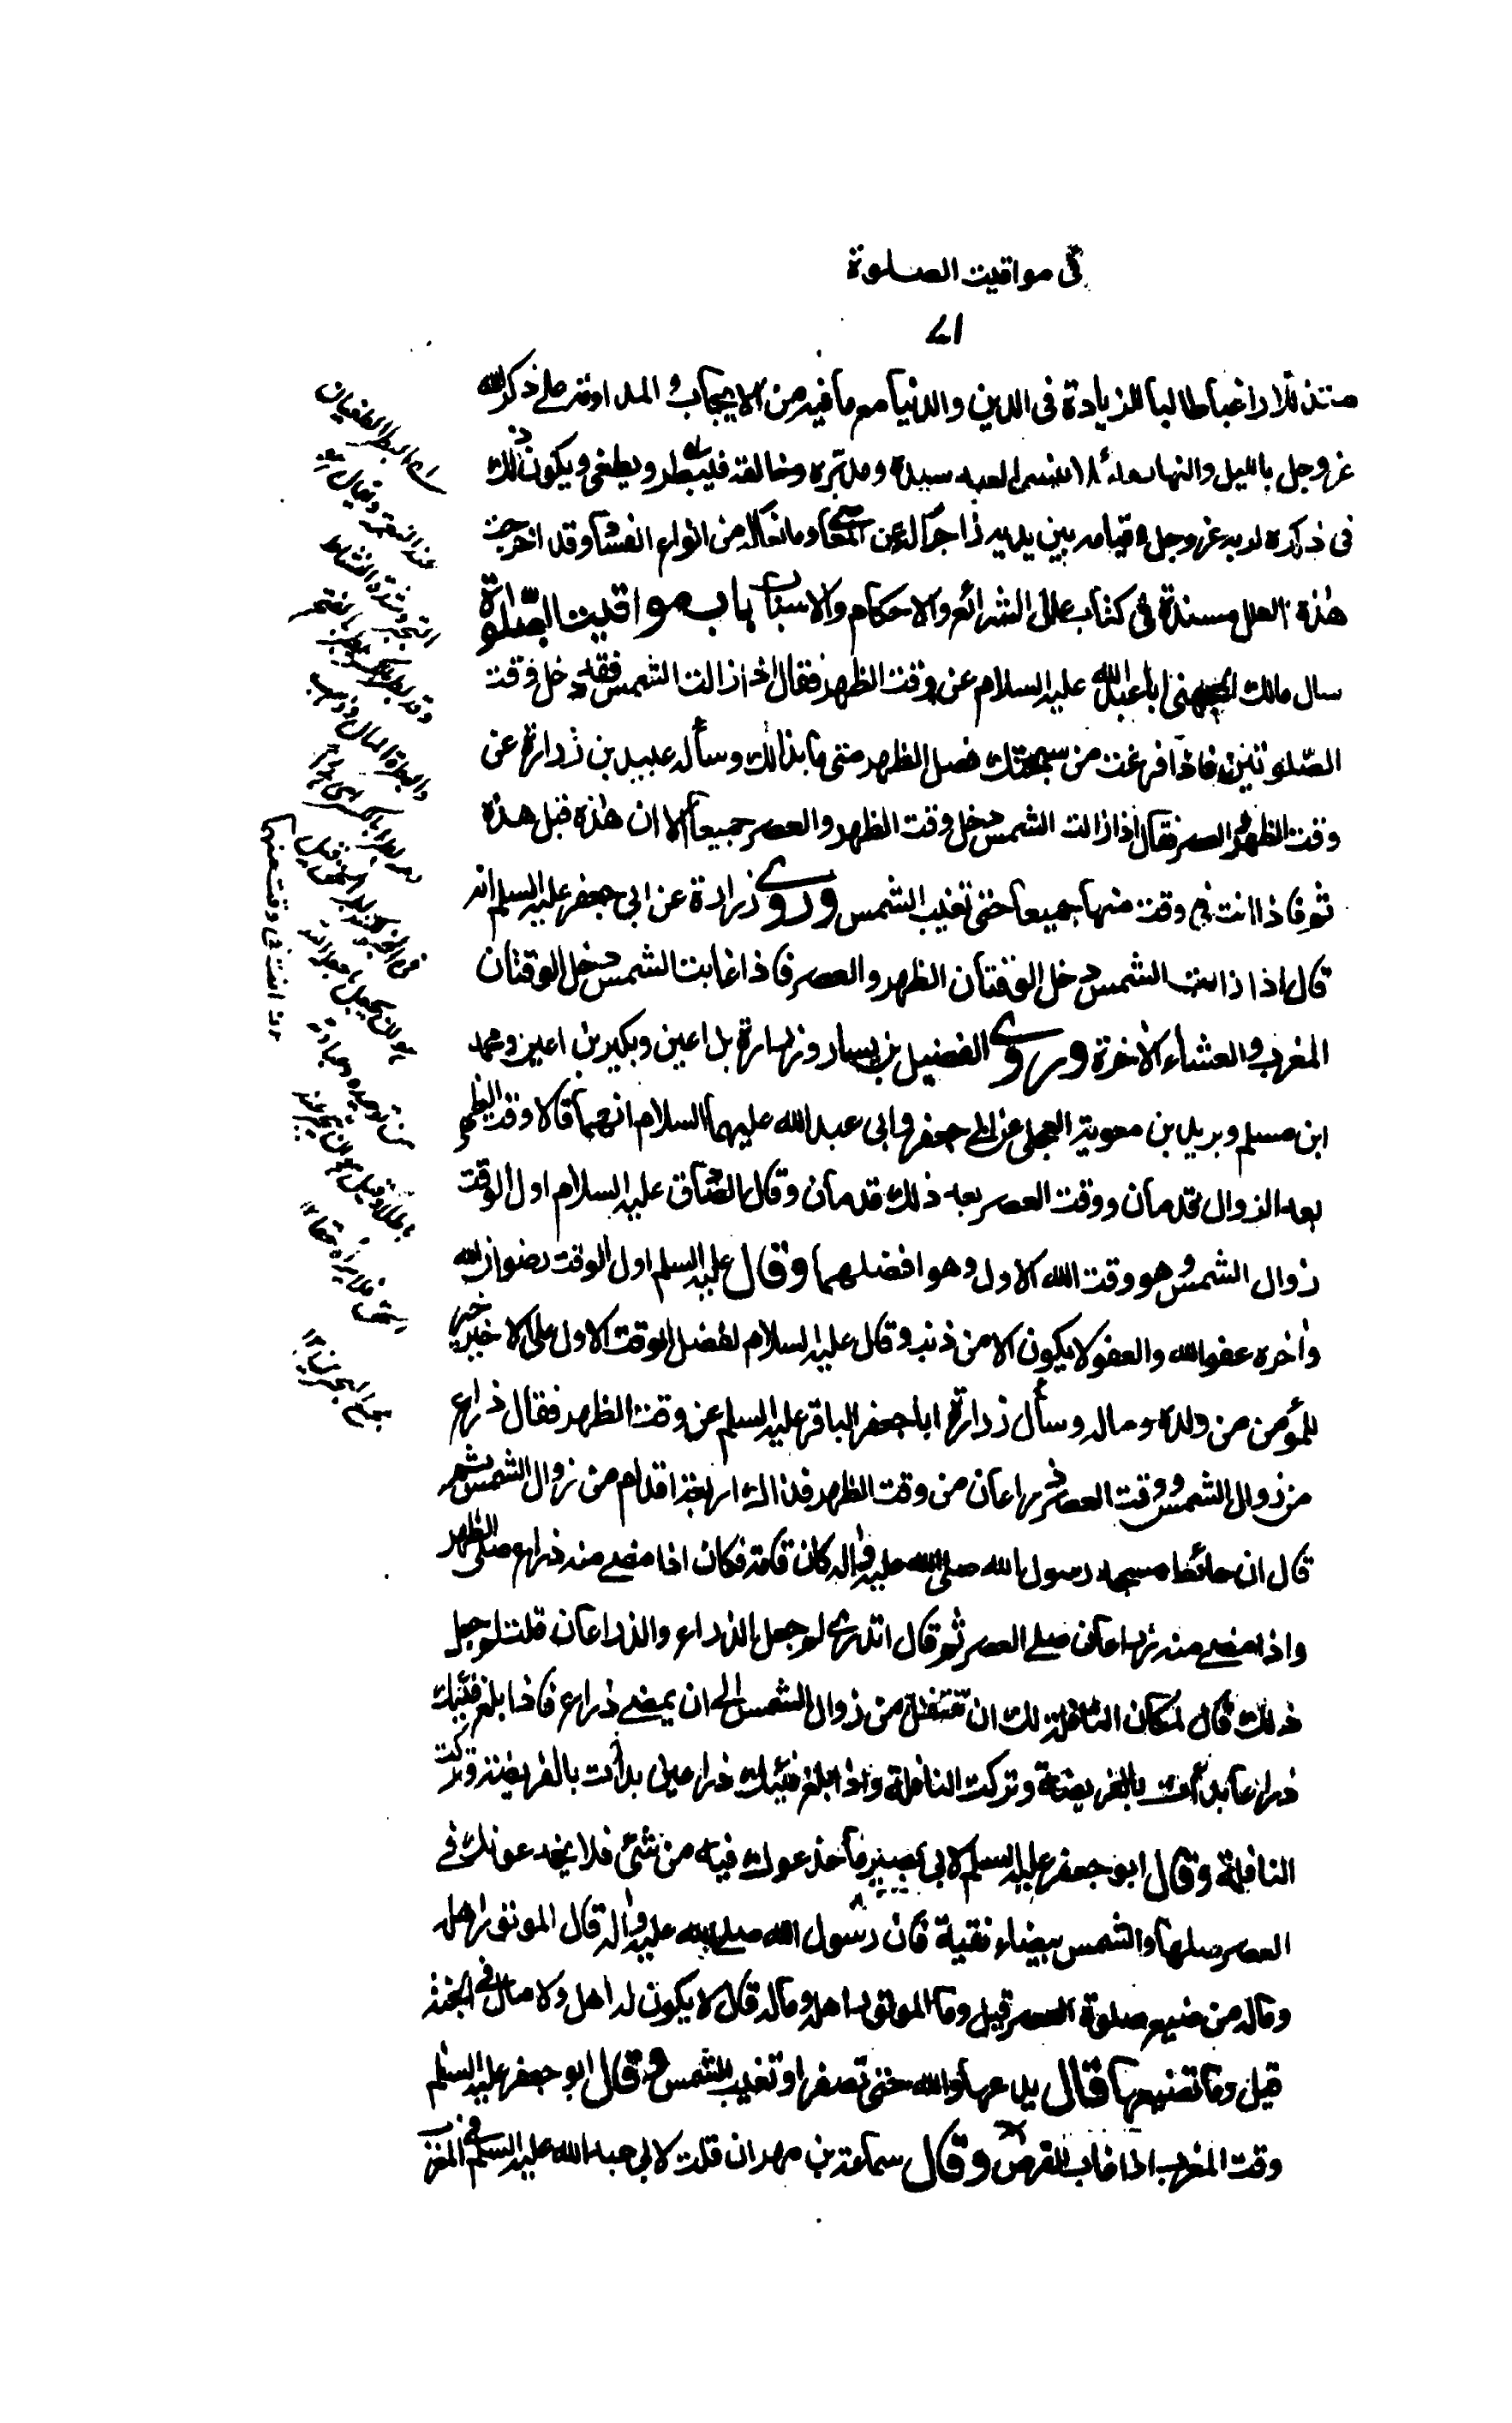 في مواقيت الصلوة
٧١
متذللا راغبا طالبا للزيادة في الدين والدنيا مع ما فيه من الايجاب والمداومة على ذكر الله
عز وجل بالليل والنهار لئلا ينسى العبد سيده ومدبره وخالقه فيبطر ويطغى ويكون ذلك
في ذكره لربه عز وجل وقيامه بين يديه زاجرا له عن المعاصي ومانعا له من انواع الفساد وقد اخرجت
هذه العلل مسندة في كتاب علل الشرائع والاحكام والاسباب باب مواقيت الصلوة
سال مالك الجهني ابا عبد الله عليه السلام عن وقت الظهر فقال اذا زالت الشمس فقد دخل وقت
الصلوتين فاذا فرغت من سبحتك فصل الظهر متى ما بدا لك وسأله عبيد بن زرارة عن
وقت الظهر والعصر فقال اذا زالت الشمس دخل وقت الظهر والعصر جميعا الا ان هذه قبل هذه
ثم فاذا انت في وقت منها جميعا حتى تغيب الشمس وروى زرارة عن ابي جعفر عليه السلم انه
قال اذا زالت الشمس دخل الوقتان الظهر والعصر فاذا غابت الشمس دخل الوقتان
المغرب والعشاء الاخرة وروى الفضيل بن يسار وزرارة بن اعين وبكير بن اعين ومحمد
ابن مسلم وبريد بن معوية العجلي عن ابي جعفر وابي عبد الله عليهما السلام انهما قالا وقت الظهر
بعد الزوال قدمان ووقت العصر بعد ذلك قدمان وقال الصادق عليه السلام اول الوقت
زوال الشمس وهو وقت الله الاول وهو افضلهما وقال عليه السلم اول الوقت رضوان الله
واخره عفو الله والعفو لا يكون الا من ذنب وقال عليه السلام لفضل الوقت الاول على الاخير خير
للمؤمن من ولده وماله وسأل زرارة ابا جعفر الباقر عليه السلم عن وقت الظهر فقال ذراع
من زوال الشمس ووقت العصر ذراعان من وقت الظهر فذلك اربعة اقدام من زوال الشمس ثم
قال ان حائط مسجد رسول الله صلى الله عليه واله كان قامة فكان اذا مضى منه ذراع صلى الظهر
واذا مضى منه ذراعان صلى العصر ثم قال اتدري لم جعل الذراع والذراعان قلت لم جعل
ذلك قال لمكان النافلة لك ان تتنفل من زوال الشمس الى ان يمضى ذراع فاذا بلغ فيئك
ذراعا بدأت بالفريضة وتركت النافلة واذا بلغ فيئك ذراعين بدأت بالفريضة وتركت
النافلة وقال ابو جعفر عليه السلم لابي بصير ما خدعوك فيه من شئ فلا يخدعونك في
العصر صلها والشمس بيضاء نقية فان رسول الله صلى الله عليه واله قال الموتور اهله
وماله من ضيع صلوة العصر قيل وما الموتور اهله وماله قال لا يكون له اهل ولا مال في الجنة
قيل وما تضييعها قال يدعها والله حتى تصفر او تغيب الشمس وقال ابو جعفر عليه السلم
وقت المغرب اذا غاب القرص وقال سماعة بن مهران قلت لابي عبد الله عليه السلم في المغرب